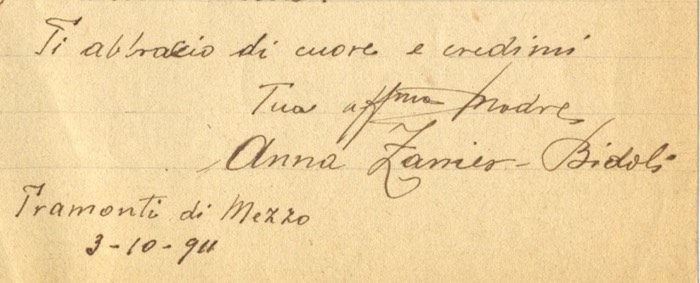 Ti abbraccio di cuore e credimi
Tua affma Madre
Anna Zannier-Bidoli
Tramonti di Mezzo
3-10-911